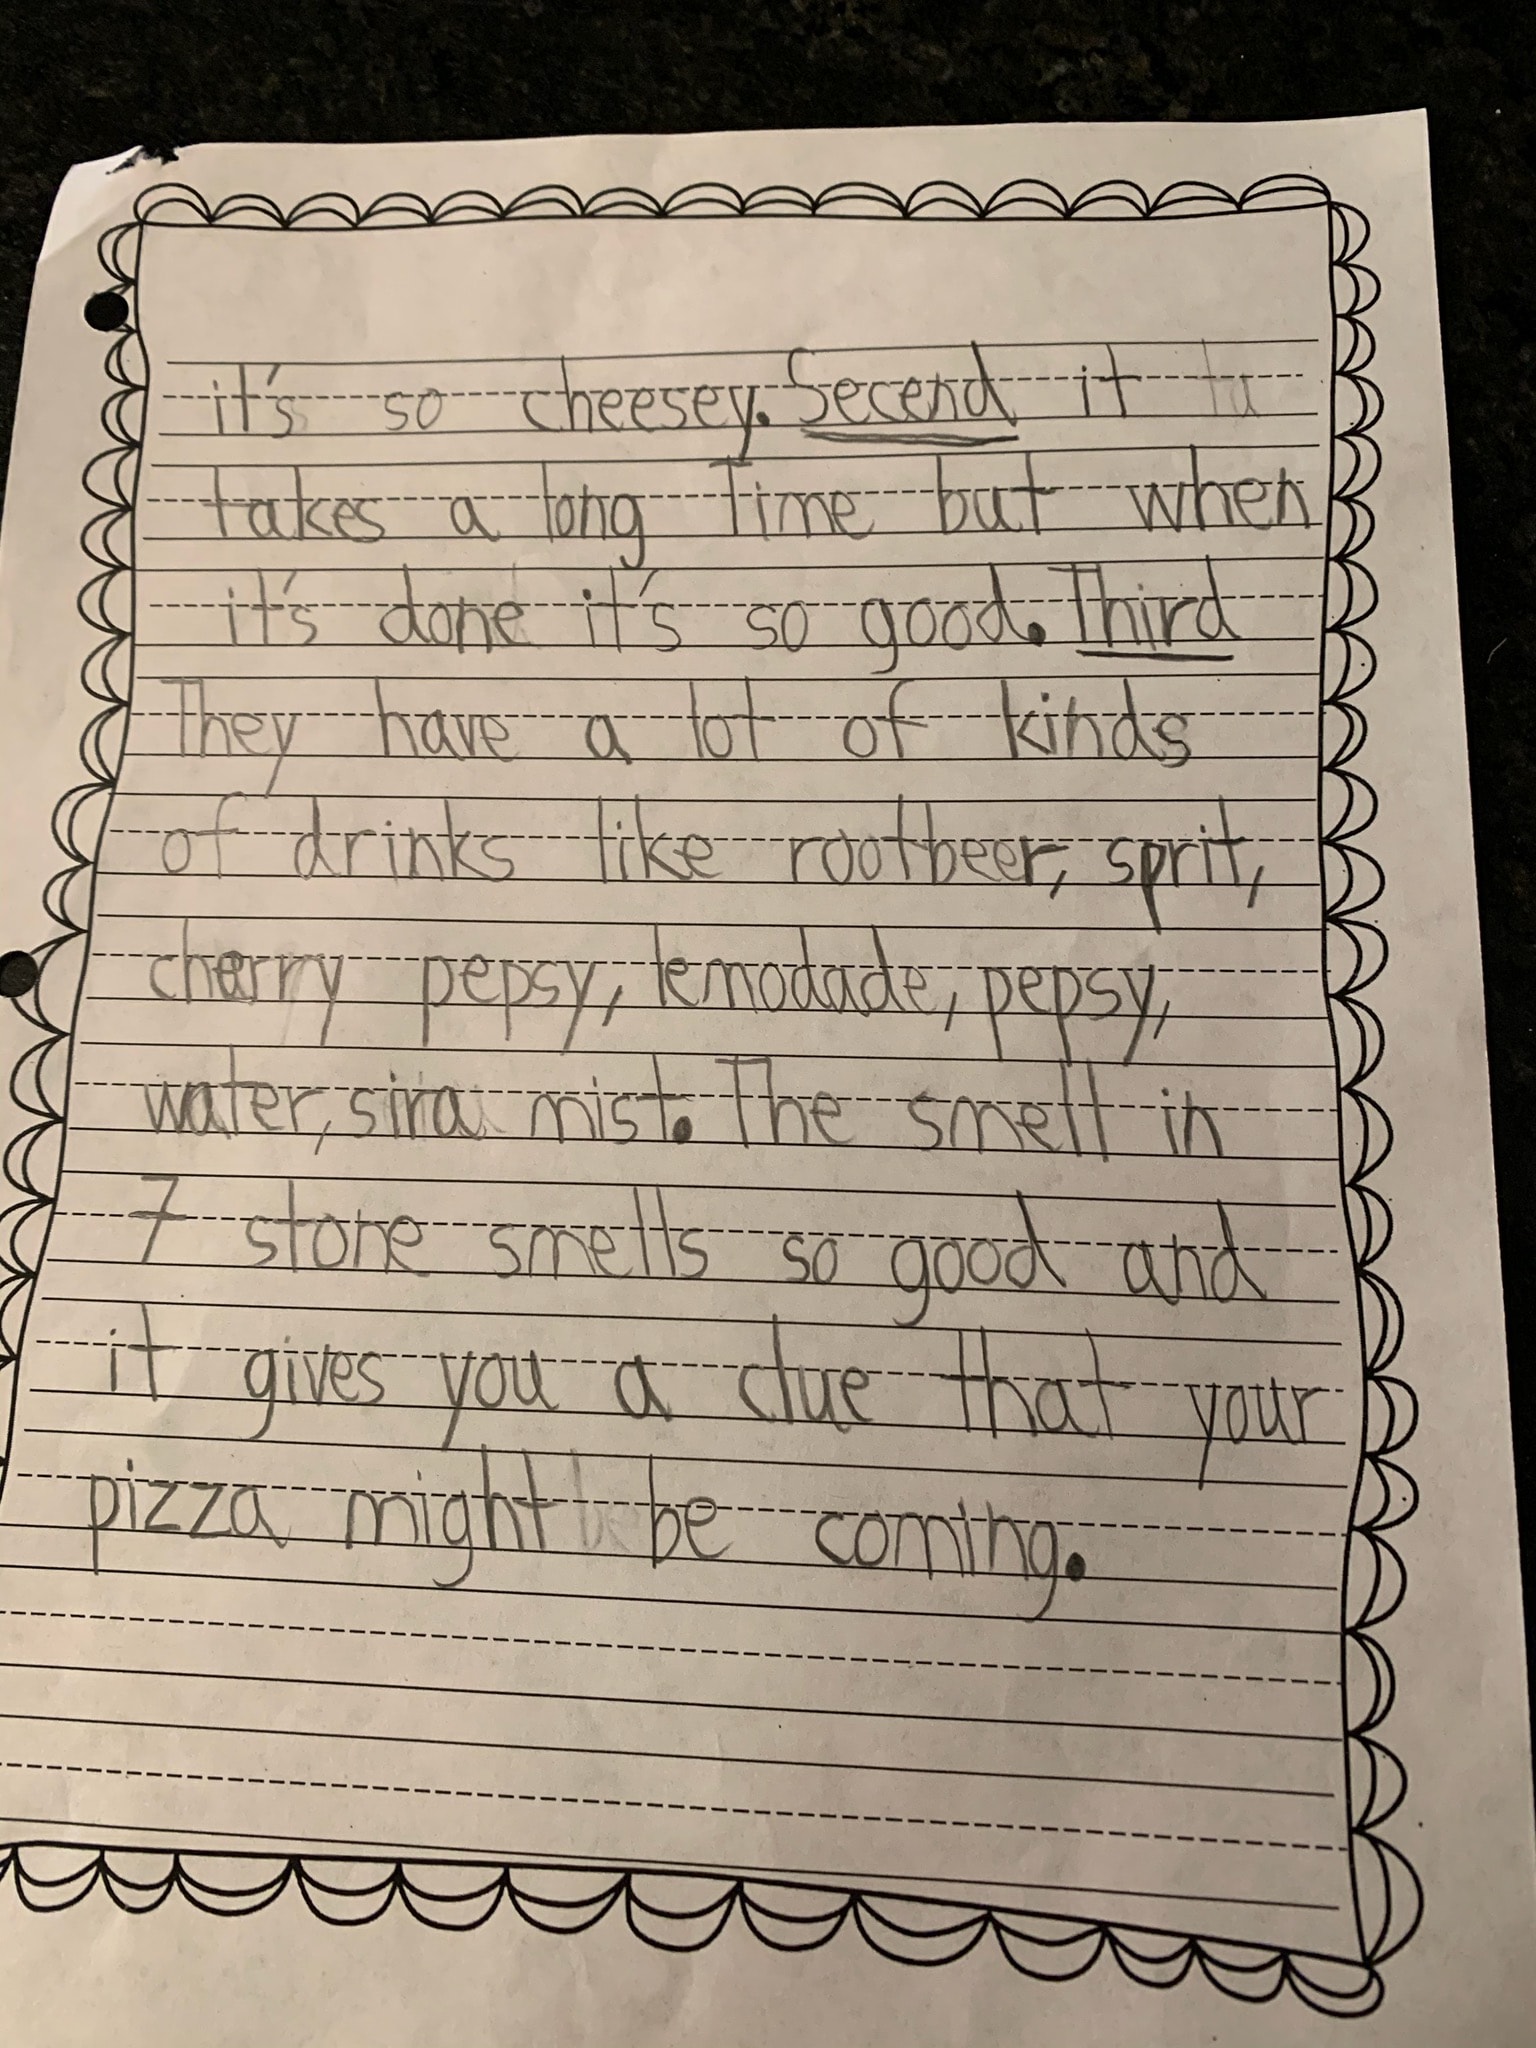 it's so cheesey. Secend it ta
takes a long Time but when
it's done it's so good. Third
They have a lot of kinds
of drinks like rootbeer, sprit,
cherry pepsy, lemodade, pepsy,
water, sira mist. The smell in
7 stone smells so good and
it gives you a clue that your
pizza might be be coming.